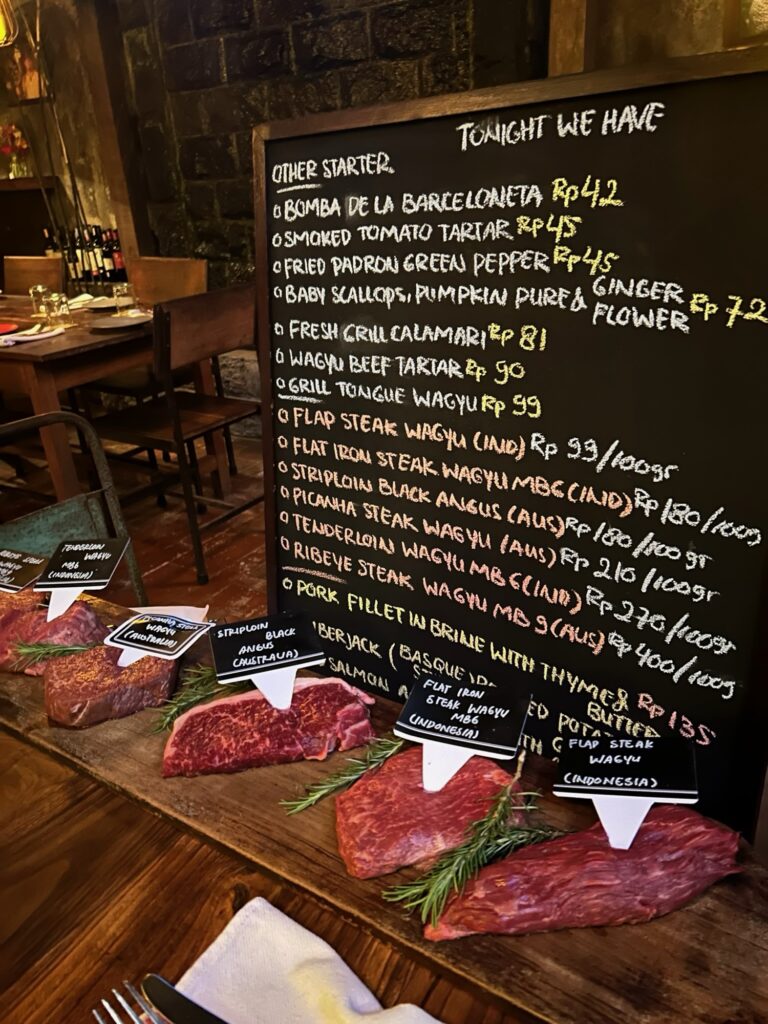 TONIGHT WE HAVE
OTHER STARTER.
O BOMBA DE LA BARCELONETA Rp 42
O SMOKED TOMATO TARTAR Rp 45
O FRIED PADRON GREEN PEPPER Rp 45
O BABY SCALLOPS, PUMPKIN PURE & GINGER FLOWER Rp 72
O FRESH GRILL CALAMARI Rp 81
O WAGYU BEEF TARTAR Rp 90
O GRILL TONGUE WAGYU Rp 99
O FLAP STEAK WAGYU (IND) Rp 99/100gr
O FLAT IRON STEAK WAGYU MB6 (IND) Rp 180/100g
O STRIPLOIN BLACK ANGUS (AUS) Rp 180/100gr
O PICANHA STEAK WAGYU (AUS) Rp 210/100gr
O TENDERLOIN WAGYU MB6 (IND) Rp 270/100gr
O RIBEYE STEAK WAGYU MB 9 (AUS) Rp 400/100g
O PORK FILLET IN BRINE WITH THYME & BUTTER Rp 135
BERJACK (BASQUE)
SALMON
TENDERLOIN WAGYU
MB6
(INDONESIA)
WAGYU
(AUSTRALIA)
STRIPLOIN BLACK
ANGUS
(AUSTRALIA)
FLAT IRON
STEAK WAGYU
MB6
(INDONESIA)
FLAP STEAK
WAGYU
(INDONESIA)